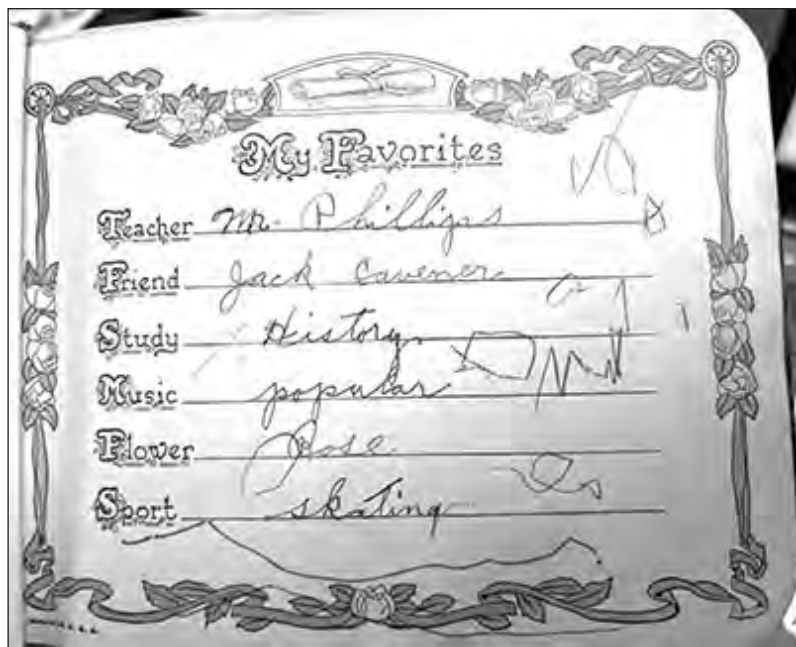 My Favorites
Teacher Mr. Phillips
Friend Jack Cavener
Study History
Music popular
Flower Rose
Sport skating